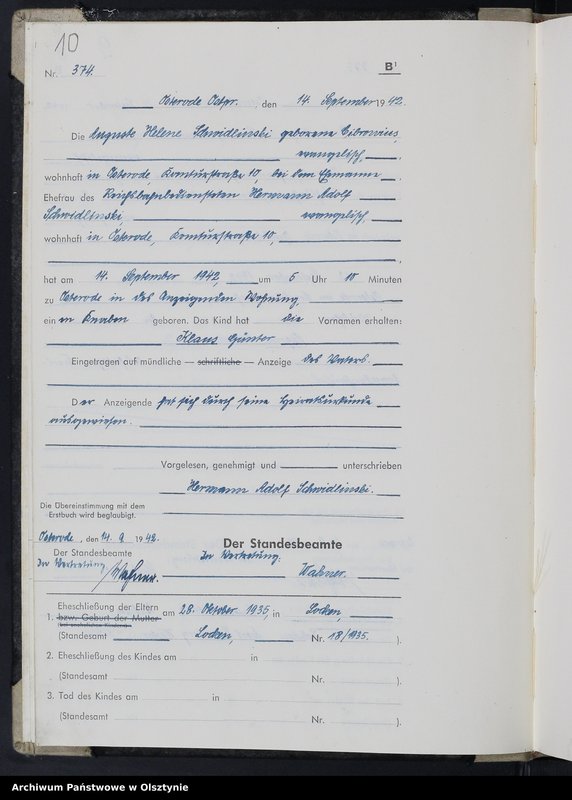 10
Nr. 374. B¹
Osterode Ostpr., den 14. September 1942.
Die Auguste Helene Schwidlinski geborene
evangelisch,
wohnhaft in Osterode, Komturstraße 10, bei dem Ehemanne
Ehefrau des Reichsbahnbediensteten Hermann Adolf
Schwidlinski, evangelisch,
wohnhaft in Osterode, Komturstraße 10,
hat am 14. September 1942, um 5 Uhr 10 Minuten
zu Osterode in des Anzeigenden Wohnung,
einen Knaben geboren. Das Kind hat die Vornamen erhalten:
Klaus Günter
Eingetragen auf mündliche — schriftliche — Anzeige des Vaters
Der Anzeigende hat sich durch seine Heiratsurkunde
ausgewiesen.
Vorgelesen, genehmigt und unterschrieben
Hermann Adolf Schwidlinski.
Die Übereinstimmung mit dem
Erstbuch wird beglaubigt.
Osterode, den 14. 9 1942.
Der Standesbeamte
In Vertretung
Der Standesbeamte
In Vertretung:
1. Eheschließung der Eltern am 28. Oktober 1935, in Locken,
bzw. Geburt der Mutter
(Standesamt Locken, Nr. 18/1935. ).
2. Eheschließung des Kindes am in
(Standesamt Nr. ).
3. Tod des Kindes am in
(Standesamt Nr. ).
Archiwum Państwowe w Olsztynie